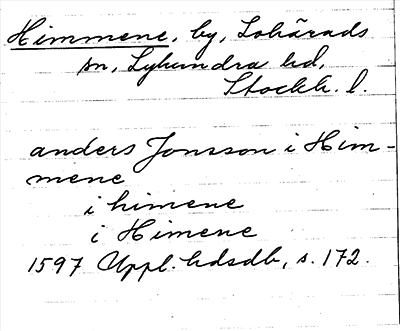 Himmene, by, Lohärads
sn, Lyhundra hd,
Stockh. l.
anders Jonsson i Him-
mene
i himene
i Himene
1597 Uppl. hdsdb, s. 172.